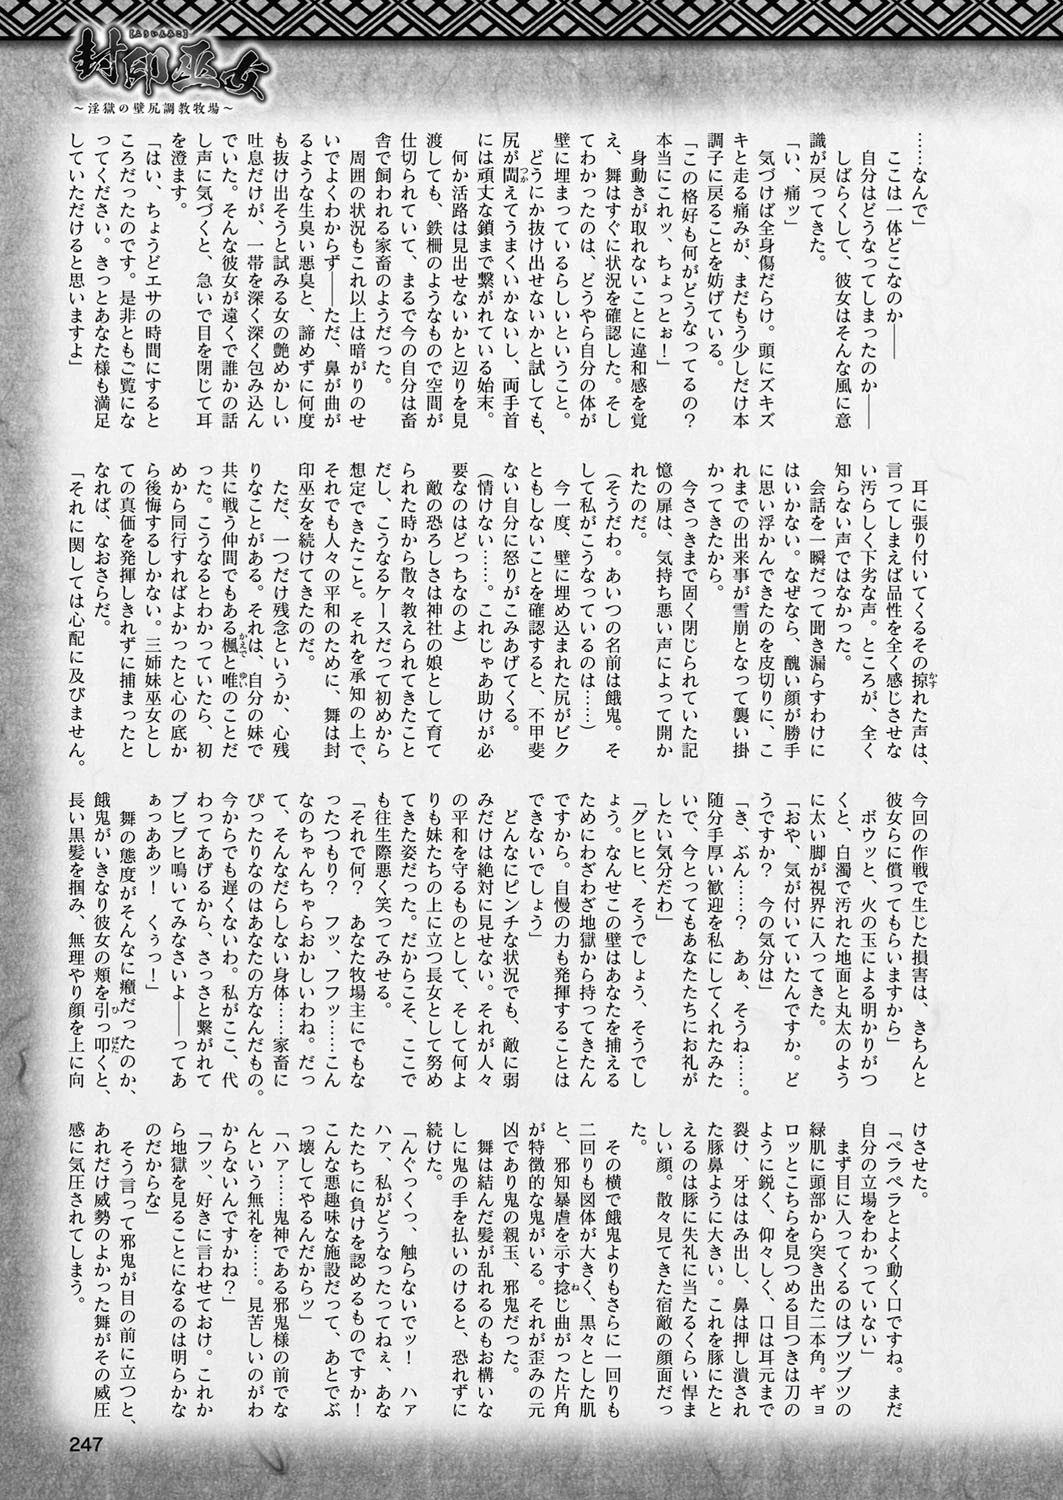 封印巫女
【ふういんみこ】
～淫獄の壁尻調教牧場～
……なんで」
　ここは一体どこなのか――
　自分はどうなってしまったのか――
　しばらくして、彼女はそんな風に意
識が戻ってきた。
「い、痛ッ」
　気づけば全身傷だらけ。頭にズキズ
キと走る痛みが、まだもう少しだけ本
調子に戻ることを妨げている。
「この格好も何がどうなってるの？
本当にこれッ、ちょっとぉ！」
　身動きが取れないことに違和感を覚
え、舞はすぐに状況を確認した。そし
てわかったのは、どうやら自分の体が
壁に埋まっているらしいということ。
　どうにか抜け出せないかと試しても、
尻が閊えてうまくいかないし、両手首
には頑丈な鎖まで繋がれている始末。
　何か活路は見出せないかと辺りを見
渡しても、鉄柵のようなもので空間が
仕切られていて、まるで今の自分は畜
舎で飼われる家畜のようだった。
　周囲の状況もこれ以上は暗がりのせ
いでよくわからず――ただ、鼻が曲が
るような生臭い悪臭と、諦めずに何度
も抜け出そうと試みる女の艶めかしい
吐息だけが、一帯を深く深く包み込ん
でいた。そんな彼女が遠くで誰かの話
し声に気づくと、急いで目を閉じて耳
を澄ます。
「はい、ちょうどエサの時間にすると
ころだったのです。是非ともご覧にな
ってください。きっとあなた様も満足
していただけると思いますよ」
　耳に張り付いてくるその掠れた声は、
言ってしまえば品性を全く感じさせな
い汚らしく下劣な声。ところが、全く
知らない声ではなかった。
　会話を一瞬だって聞き漏らすわけに
はいかない。なぜなら、醜い顔が勝手
に思い浮かんできたのを皮切りに、こ
れまでの出来事が雪崩となって襲い掛
かってきたから。
　今さっきまで固く閉じられていた記
憶の扉は、気持ち悪い声によって開か
れたのだ。
（そうだわ。あいつの名前は餓鬼。そ
して私がこうなっているのは……）
　今一度、壁に埋め込まれた尻がビク
ともしないことを確認すると、不甲斐
ない自分に怒りがこみあげてくる。
（情けない……。これじゃあ助けが必
要なのはどっちなのよ）
　敵の恐ろしさは神社の娘として育て
られた時から散々教えられてきたこと
だし、こうなるケースだって初めから
想定できたこと。それを承知の上で、
それでも人々の平和のために、舞は封
印巫女を続けてきたのだ。
　ただ、一つだけ残念というか、心残
りなことがある。それは、自分の妹で
共に戦う仲間でもある楓と唯のことだ
った。こうなるとわかっていたら、初
めから同行すればよかったと心の底か
ら後悔するしかない。三姉妹巫女とし
ての真価を発揮しきれずに捕まったと
なれば、なおさらだ。
「それに関しては心配に及びません。
今回の作戦で生じた損害は、きちんと
彼女らに償ってもらいますから」
　ボウッと、火の玉による明かりがつ
くと、白濁で汚れた地面と丸太のよう
に太い脚が視界に入ってきた。
「おや、気が付いていたんですか。ど
うですか？　今の気分は」
「き、ぶん……？　あぁ、そうね……。
随分手厚い歓迎を私にしてくれたみた
いで、今とってもあなたたちにお礼が
したい気分だわ」
「グヒヒヒ、そうでしょう、そうでし
ょう。なんせこの壁はあなたを捕える
ためにわざわざ地獄から持ってきたん
ですから。自慢の力も発揮することは
できないでしょう」
　どんなにピンチな状況でも、敵に弱
みだけは絶対に見せない。それが人々
の平和を守るものとして、そして何よ
りも妹たちの上に立つ長女として努め
てきた姿だった。だからこそ、ここで
も往生際悪く笑ってみせる。
「それで何？　あなた牧場主にでもな
ったつもり？　フッ、フフッ……こん
なのちゃんちゃらおかしいわね。だっ
て、そんなだらしない身体……家畜に
ぴったりなのはあなたの方なんだもの。
今からでも遅くないわ。私がここ、代
わってあげるから、さっさと繋がれて
ブヒブヒ鳴いてみなさいよ――ってあ
ぁっああッ！　くぅっ！」
　舞の態度がそんなに癪だったのか、
餓鬼がいきなり彼女の頬を引っ叩くと、
長い黒髪を掴み、無理やり顔を上に向
けさせた。
「ペラペラとよく動く口ですね。まだ
自分の立場をわかっていない」
　まず目に入ってくるのはブツブツの
緑肌に頭部から突き出た二本角。ギョ
ロッとこちらを見つめる目つきは刀の
ように鋭く、仰々しく、口は耳元まで
裂け、牙ははみ出し、鼻は押し潰され
た豚鼻ように大きい。これを豚にたと
えるのは豚に失礼に当たるくらい悍ま
しい顔。散々見てきた宿敵の顔面だっ
た。
　その横で餓鬼よりもさらに一回りも
二回りも図体が大きく、黒々とした肌
と、邪知暴虐を示す捻じ曲がった片角
が特徴的な鬼がいる。それが歪みの元
凶であり鬼の親玉、邪鬼だった。
　舞は結んだ髪が乱れるのもお構いな
しに鬼の手を払いのけると、恐れずに
続けた。
「んぐっくっ、触らないでッ！　ハァ
ハァ、私がどうなったってねぇ、あな
たたちに負けを認めるものですか！
こんな悪趣味な施設だって、あとでぶ
っ壊してやるんだからッ」
「ハァ……鬼神である邪鬼様の前でな
んという無礼を……。見苦しいのがわ
からないんですかね？」
「フッ、好きに言わせておけ。これか
ら地獄を見ることになるのは明らかな
のだからな」
　そう言って邪鬼が目の前に立つと、
あれだけ威勢のよかった舞がその威圧
感に気圧されてしまう。
247